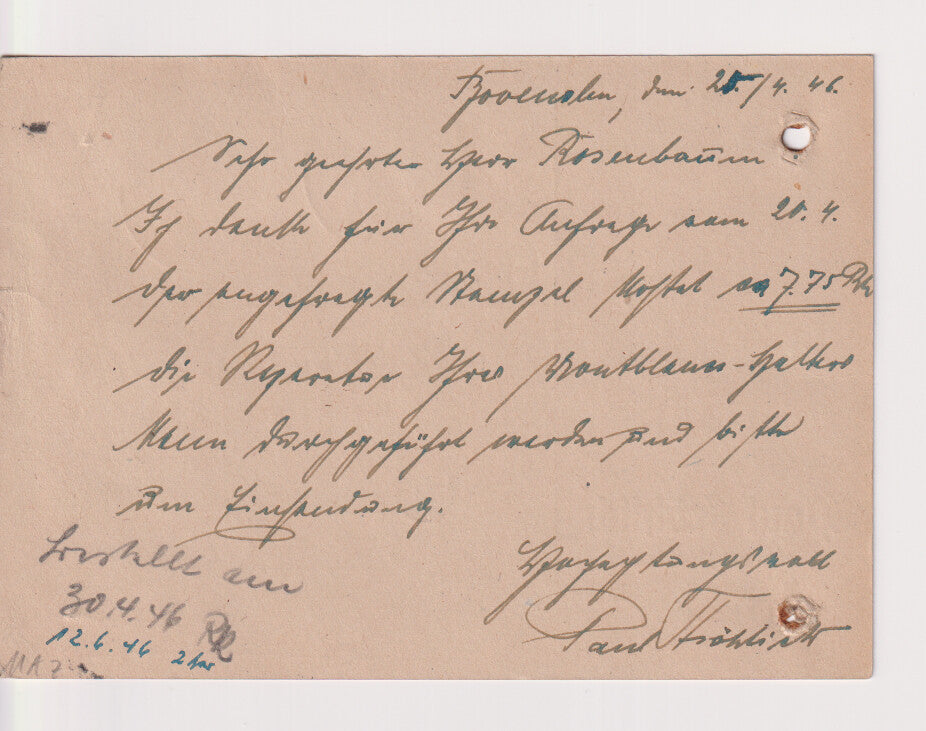 Bovenden, den 25./4. 46.
Sehr geehrter Herr Rosenbaum
Ich danke für Ihre Anfrage vom 20. 4.
der angefragte Stempel kostet 7.75 RM
die Reparatur Ihres Montblanc-Halters
kann durchgeführt werden und bitte
um Einsendung.
Hochachtungsvoll
Paul Fröhlich
bestellt am
30.4.46
12.6.46